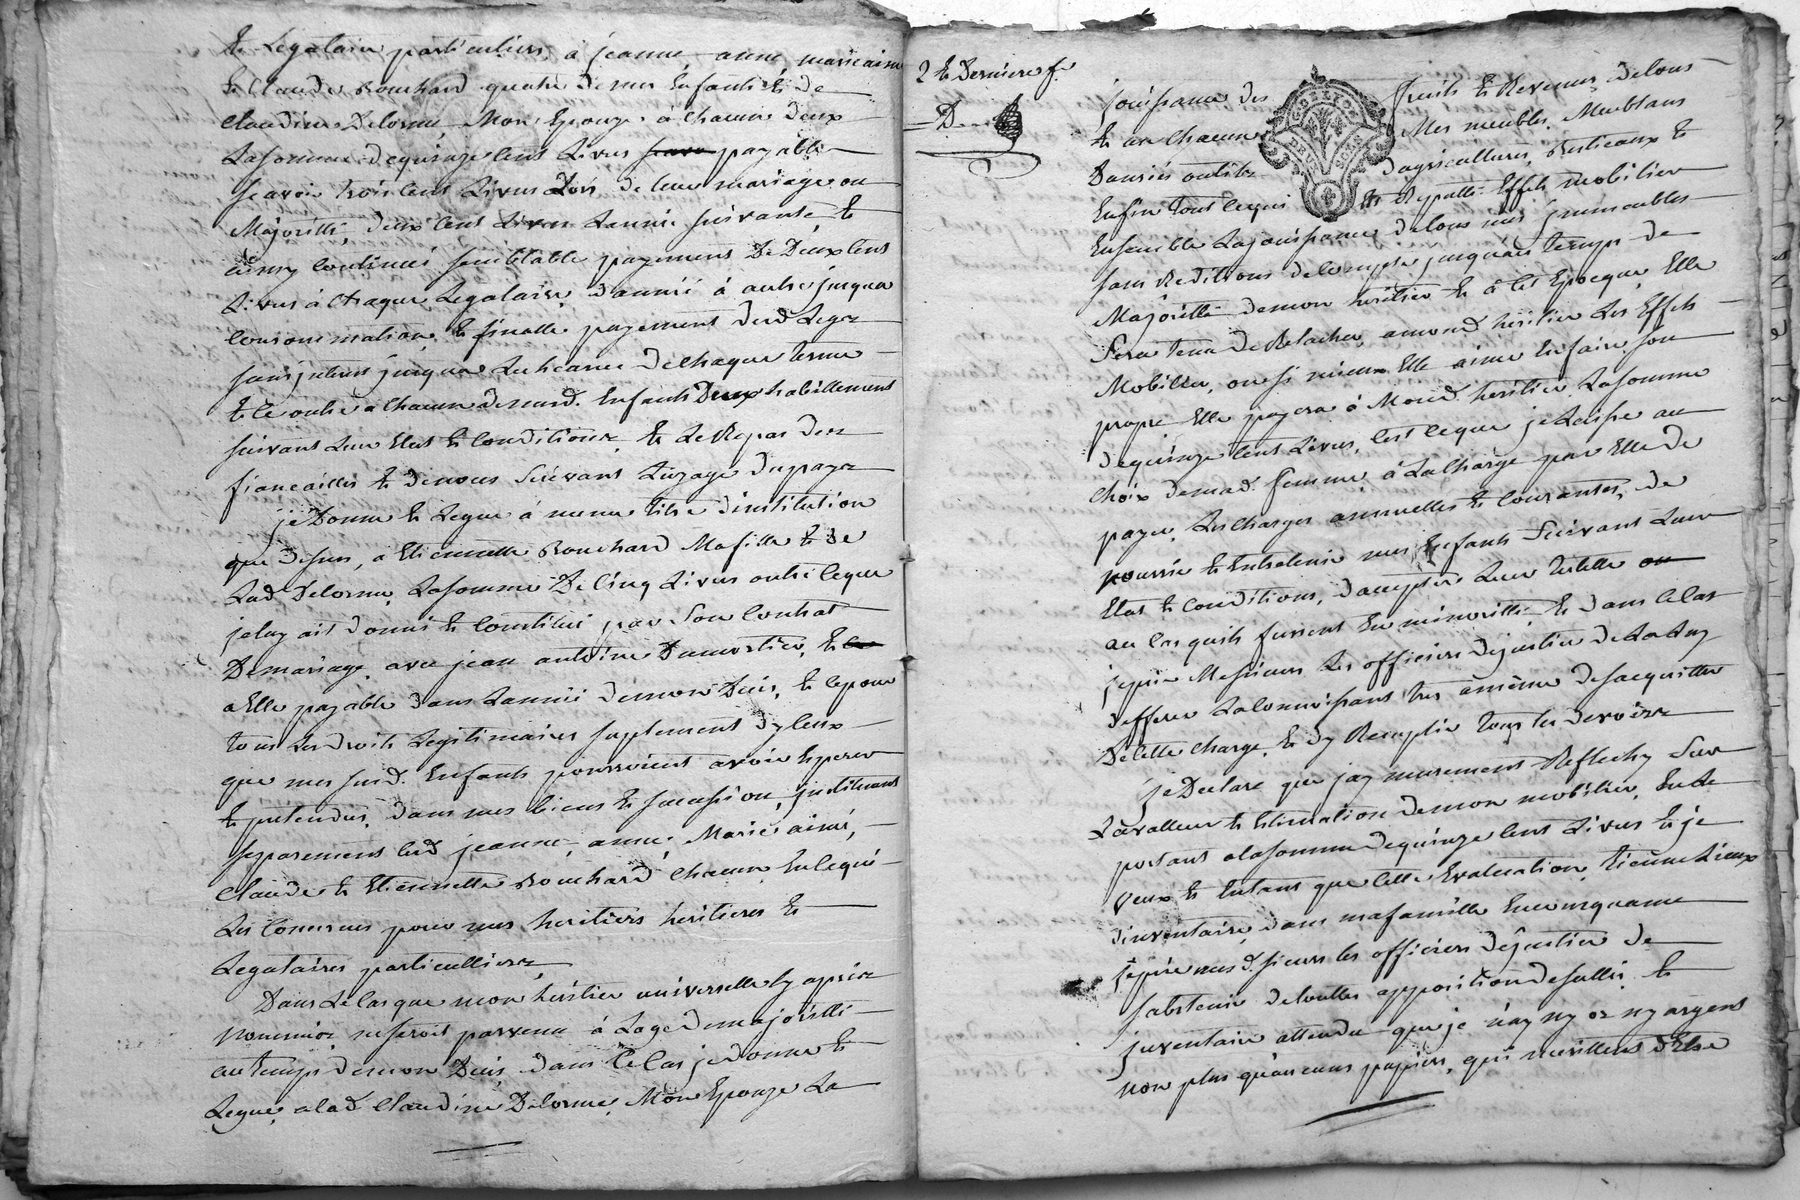 et Legataire particuliers, à jeanne, anne, marie aimé
et Claude Bouchard quatre de mes Enfants et de
Claudine Delorme, Mon Epouze à chacun Deux
La somme de quinze Cent Livres payable
sçavoir trois Cent Livres Lors de leur mariage ou
Majoritté, deux Cent Livres Lannée suivante, et
ainsy Continué semblable payement De Deux Cent
Livres à Chaque Legataire, d'année à autre jusqua
Consommation, et finalle payement desd Legs
sans jnterest jusqua Lecheance de chaque terme
et ce outre a Chacun de mesd. Enfants Deux habillement
suivant Leur Etat et Conditions, et Le Repas des
fiancailles et de nous Suivant Luzage du payz
je Donne et Legue à meme titre d'institution
que dessus, à Etiennette Bouchard Ma fille et de
Lad Delorme, La somme De Cinq Livres outre ceque
je luy ait donné et Constitué par Son Contrat
De mariage, avec jean antoine Dumortier, et
a Elle payable dans Lannée de mon Deces, et ce pour
tous Les droits Legitimaires suplement d'yceux
que mes susd. Enfants pourroient avoir Esperer
et pretendre, dans mes biens et succession, jnstituant
separement lesd jeanne, anne, Marie aimé,
Claude et Etiennette Bouchard Chacun En ce qui
Les Concerne pour mes heritiers heritieres et
Legataires particullieres
Dans Le Cas que mon heritier universelle Cy apres
nommé, ne seroit parvenu à Lage de majoritté
au temps de mon Deces, dans Ce Cas je donne et
Legue, a lad Claudine Delorme, Mon Epouze La
2 et Derniere f.
D
jouissance des fruits et Revenus de tous
et un Chacun Mes meubles, Meublans
Danrées outils d'agricultures, Bestieaux et
Enfin tout ce qui Est Reputté Effets mobilier
Ensemble La jouissance de tous mes jmmeubles
sans Reditions de Compte jusqu'au temps de
Majoritté de mon heritier et à Cet Epoque, Elle
Sera tenu de Relacher, a mond heritier Les Effets
Mobilier, ou si mieux Elle aime En faire Son
propre Elle payera à Mond. heritier, La somme
de quinze Cent Livres, C'est Ceque je Laisse au
Choix de mad. femme, à La Charge par Elle de
payer, Les Charges annuelles et Courantes, de
nourrir et Entretenir mes Enfants Suivant Leur
Etat et Conditions, d'accepter Leur tutelle
au Cas quils fussent En minoritté, et dans Ce Cas
je prie Messieurs Les officiers de justice de
defferer La Connoissant tres a meme de sacquitter
De Cette Charge, Et d'y Remplir tous les devoirs
Je Declare que jay murement Reflechy Sur
La valleur et Estimation de mon mobilier,
portant a la somme de quinze Cent Livres et je
veux et Entant que Cette Evaluation, tienne Lieux
d'inventaire, dans ma famille En consequance
je prie mesd. sieurs les officiers de justice de
sabstenir de touttes apposition de sellés et
jnventaire attendu que je n'ay ny or ny argent
non plus qu'aucuns papiers, qui meritent d'Etre